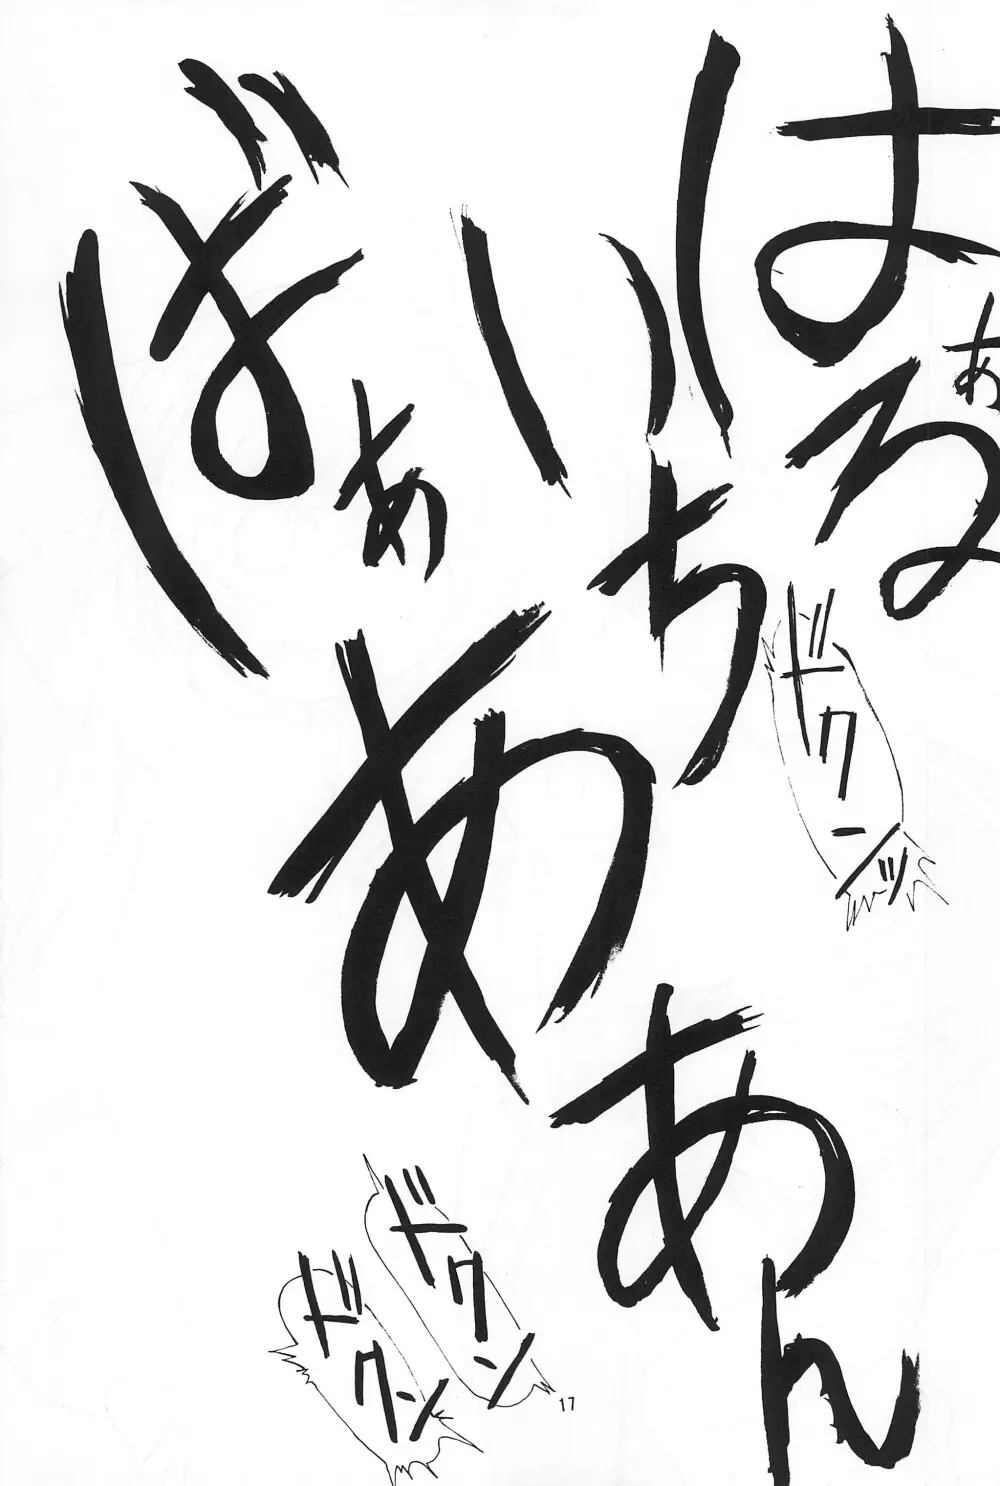 はぁる
いち
ばぁああん
ドクンッ
ドクン
ドクン
17